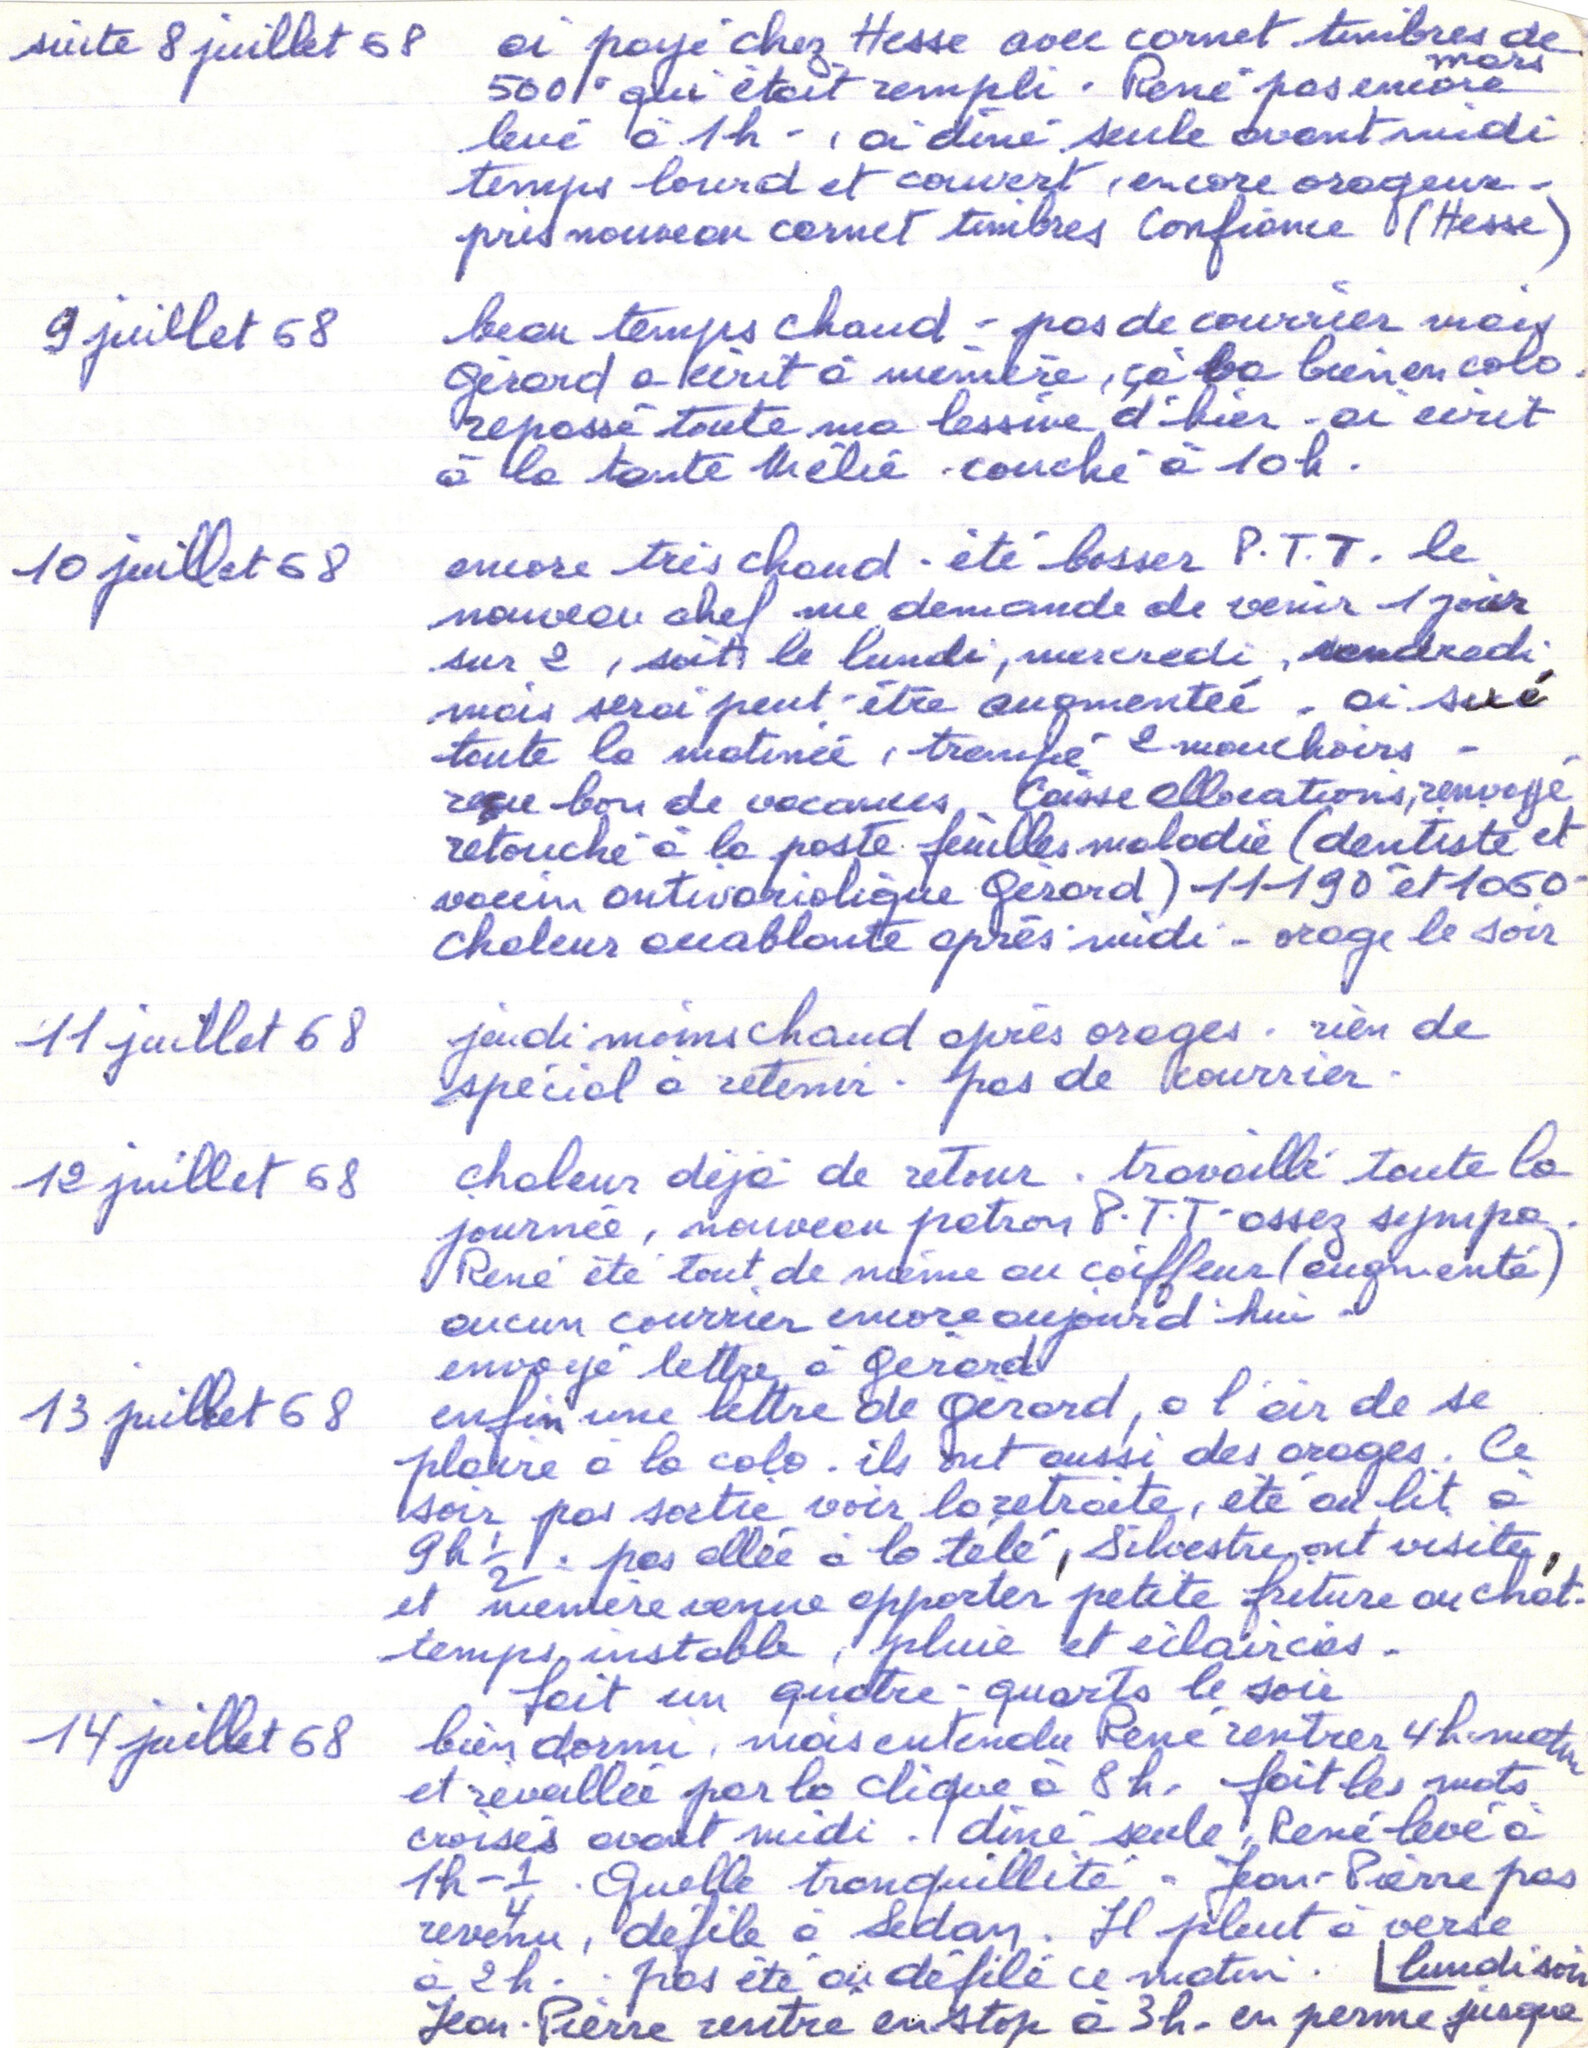 suite 8 juillet 68 ai payé chez Hesse avec carnet timbres de
500F qui était rempli. René pas encore mars
levé à 1h -, ai diné seule avant midi
temps lourd et couvert, encore orageux -
pris nouveau carnet timbres Confiance (Hesse)
9 juillet 68 beau temps chaud - pas de courrier mais
Gérard a écrit à mémère, çà va bien en colo.
repassé toute ma lessive d'hier - ai écrit
à la tante Mélie. couché à 10h.
10 juillet 68 encore très chaud - été bosser P.T.T. le
nouveau chef me demande de venir 1 jour
sur 2, soit le lundi, mercredi, vendredi,
mais serai peut-être augmenteé. ai sué
toute la matinée, trempé 2 mouchoirs -
reçu bon de vacances Caisse allocations, renvoyé
retouché à la poste feuilles maladie (dentiste et
vaccin antivariolique Gérard) 11190 et 1060 -
chaleur accablante après-midi - orage le soir
11 juillet 68 jeudi moins chaud après orages. rien de
spécial à retenir. pas de courrier.
12 juillet 68 chaleur déjà de retour. travaillé toute la
journée, nouveau patron P.T.T - assez sympa.
René été tout de même au coiffeur (augmenté)
aucun courrier encore aujourd'hui -
envoyé lettre à Gérard
13 juillet 68 enfin une lettre de Gérard, a l'air de se
plaire à la colo. ils ont aussi des orages. Ce
soir pas sortie voir la retraite, été au lit à
9h 1/2. pas allée à la télé, Silvestre ont visite,
et mémère venue apporter petite friture au chat.
temps instable, pluie et éclaircies.
fait un quatre-quarts le soir
14 juillet 68 bien dormi, mais entendu René rentrer 4h matin
et réveillée par la clique à 8h. fait les mots
croisés avant midi. diné seule, René levé à
1h - 1/4. Quelle tranquillité - Jean-Pierre pas
revenu, défile à Sedan. Il pleut à verse
à 2h. pas été au défilé ce matin. lundi soir
Jean-Pierre rentre en stop à 3h - en perme jusque